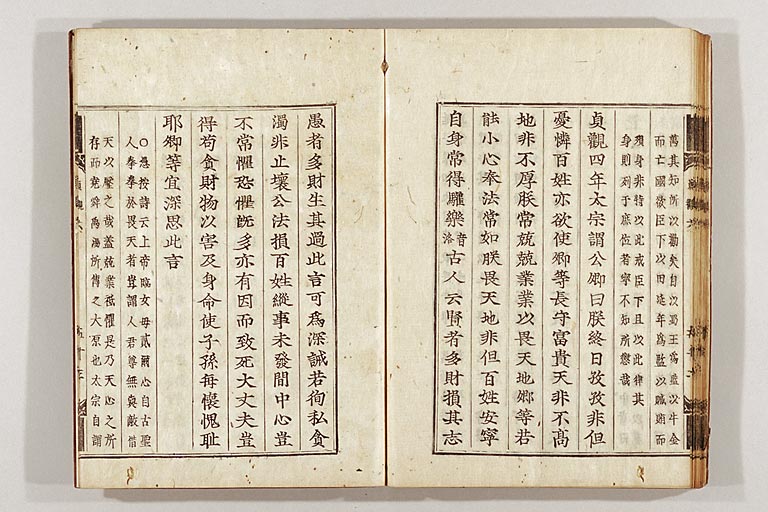 萬其知所以勸矣自次蜀王為監以牛金
而亡國欲臣下以田延年為監以贓賄而
殞身非特以此戒臣下且以此律其
身則列于庶位者寧不知所懲哉
貞觀四年太宗謂公卿曰朕終日孜孜非但
憂憐百姓亦欲使卿等長守富貴天非不高
地非不厚朕常兢兢業業以畏天地卿等若
能小心奉法常如朕畏天地非但百姓安寧
自身常得驩樂音洛古人云賢者多財損其志
愚者多財生其過此言可為深誡若徇私貪
濁非止壞公法損百姓縱事未發聞中心豈
不常懼恐懼既多亦有因而致死大丈夫豈
得苟貪財物以害及身命使子孫每懷愧耻
耶卿等宜深思此言
○愚按詩云上帝臨女毋貳爾心自古聖
人拳拳於畏天者豈謂人君尊無與敵借
天以壓之哉蓋兢業祗懼是乃天心之所
存而堯舜禹湯所傳之大原也太宗自謂